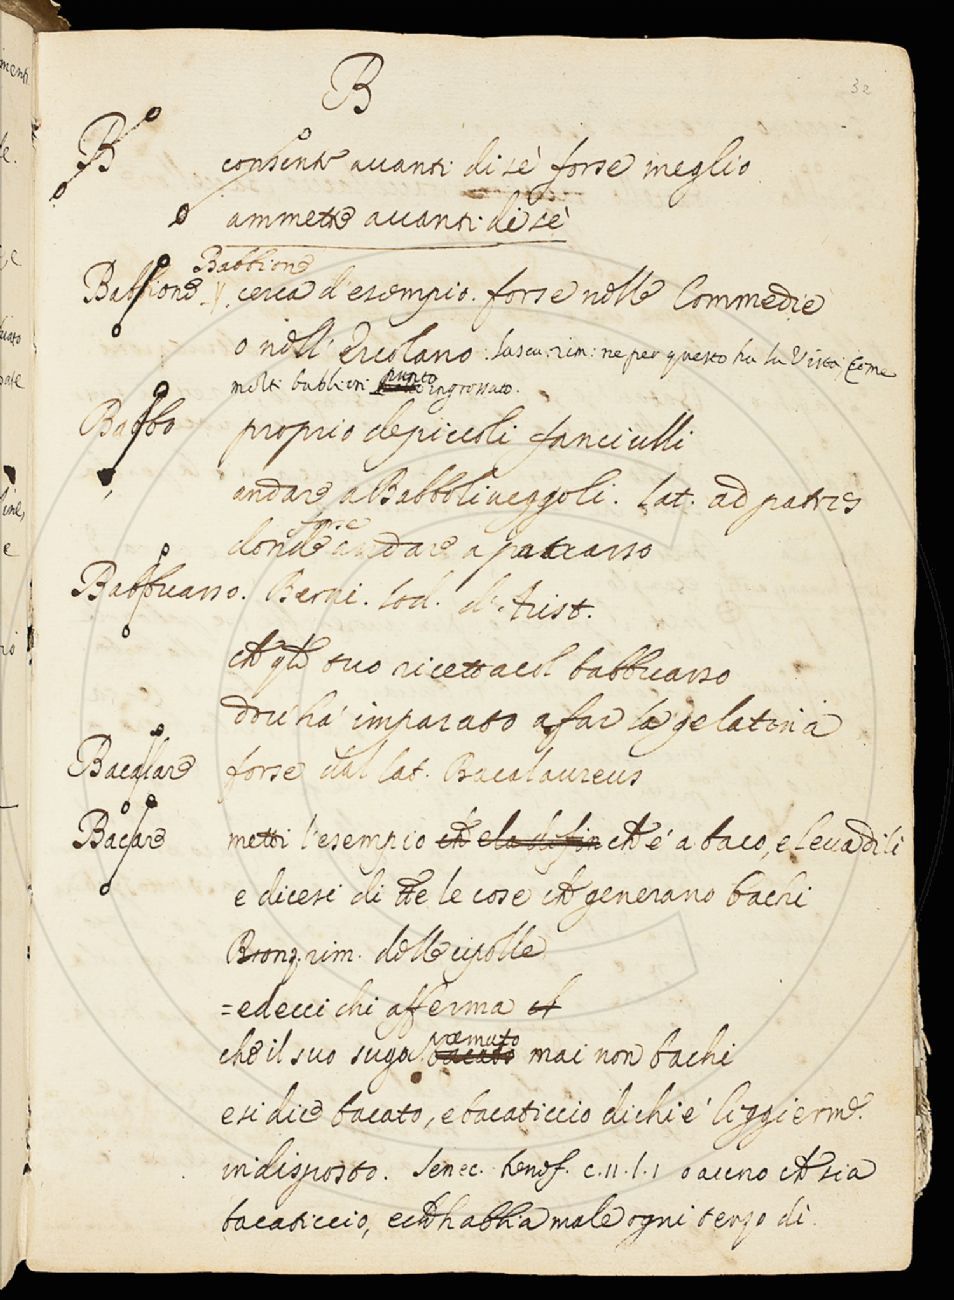 B
32
B consente avanti di sè forse meglio
ammette avanti di sè
Babbione
Babbione cerca d'esempio. forse nelle Commedie
o nell'Ercolano. Lasca. rim: ne per questo ha la Vista Come
molti babbioni punto ingrossato.
Babbo proprio de piccoli fanciulli
andare a Babboriveggoli. Lat. ad patres
forse
donde andare a patrasso
Babbuasso. Berni. lod. d'Arist.
dov'ha imparato a far la gelatina
Bacalare forse dal lat. Bacalaureus
Bacare metti l'esempio ch'è a baco, e leva di lì
e dicesi di tte le cose che generano bachi
Bronz. rim. delle cipolle
=edecci chi afferma
che il suo sugo premuto mai non bachi
e si dice bacato, e bacaticcio di chi è leggierme.
indisposto. Senec. benef. c. 11. l. 1 o aveno che sia
bacaticcio, e ch'habbia male ogni terzo dì